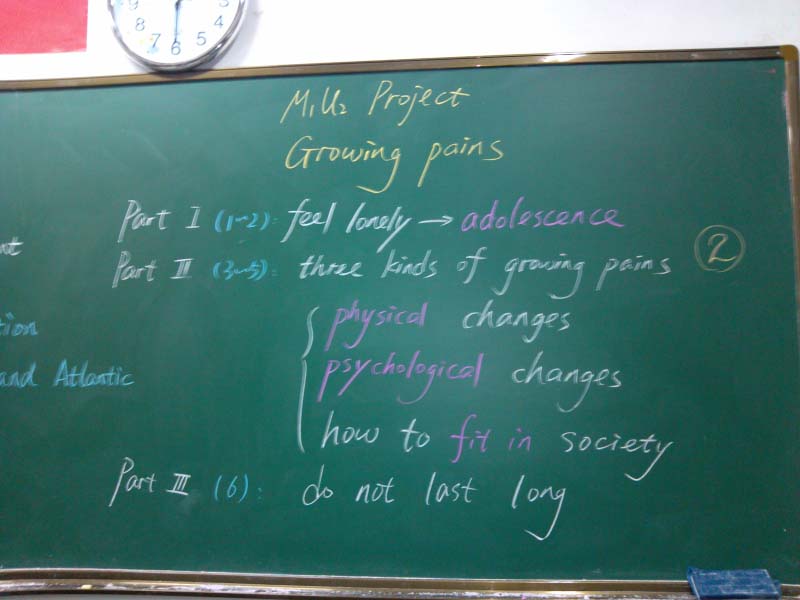 9 8 7 6 5 4
M1U2 Project
Growing pains
Part I (1~2): feel lonely → adolescence
Part II (3~5): three kinds of growing pains
②
physical changes
tion
psychological changes
and Atlantic
how to fit in society
Part III (6): do not last long